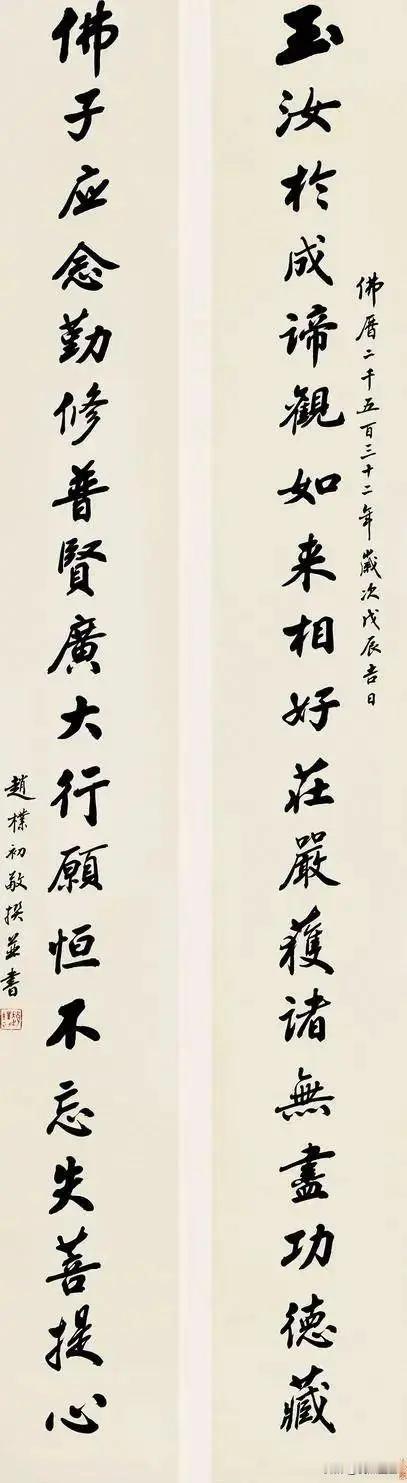 佛曆二千五百三十二年歲次戊辰吉日
玉汝於成諦觀如来相好莊嚴獲諸無盡功德藏
佛子应念勤修普賢廣大行願恒不忘失菩提心
趙樸初敬撰並書